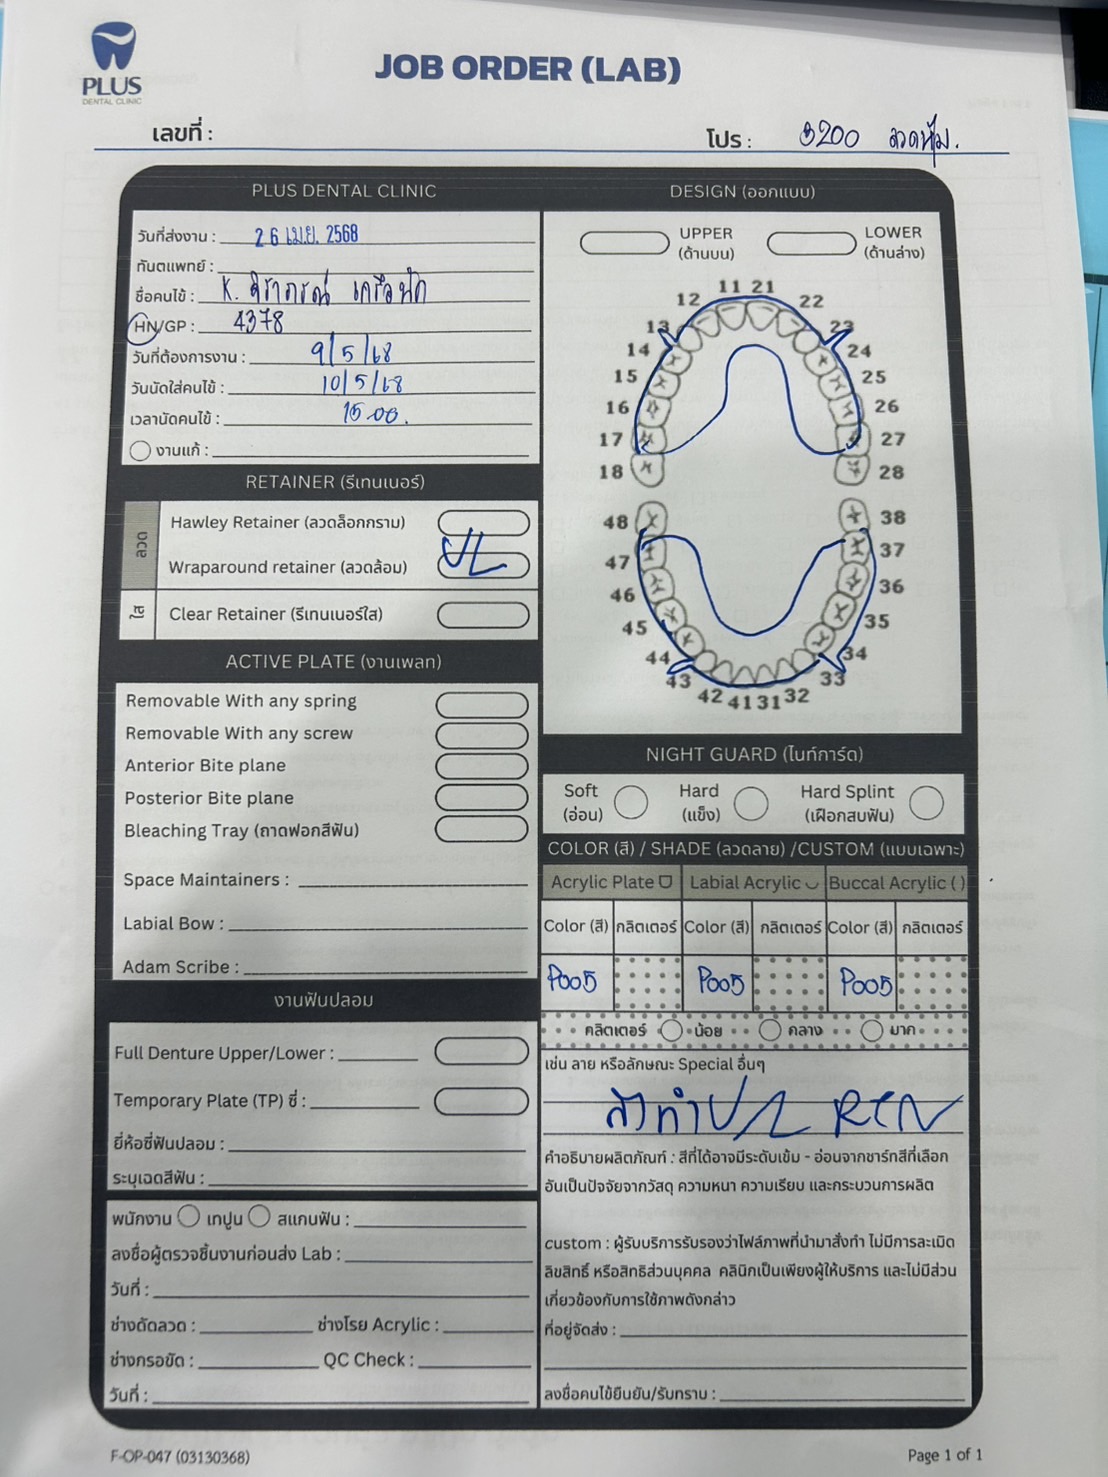 PLUS
DENTAL CLINIC
JOB ORDER (LAB)
เลขที่ :
โปร : 3200 ลวดหุ้ม.
PLUS DENTAL CLINIC
วันที่ส่งงาน : 26 เม.ย. 2568
ทันตแพทย์ :
ชื่อคนไข้ : K. จิราภรณ์
HN/GP : 4378
วันที่ต้องการงาน : 9/5/68
วันนัดใส่คนไข้ : 10/5/68
เวลานัดคนไข้ : 15.00.
งานแก้ :
RETAINER (รีเทนเนอร์)
ลวด
Hawley Retainer (ลวดล็อกกราม)
Wraparound retainer (ลวดล้อม) U/L
ใส
Clear Retainer (รีเทนเนอร์ใส)
ACTIVE PLATE (งานเพลท)
Removable With any spring
Removable With any screw
Anterior Bite plane
Posterior Bite plane
Bleaching Tray (ถาดฟอกสีฟัน)
Space Maintainers :
Labial Bow :
Adam Scribe :
งานฟันปลอม
Full Denture Upper/Lower :
Temporary Plate (TP) ซี่ :
ยี่ห้อซี่ฟันปลอม :
ระบุเฉดสีฟัน :
พนักงาน เทปูน สแกนฟัน :
ลงชื่อผู้ตรวจชิ้นงานก่อนส่ง Lab :
วันที่ :
ช่างดัดลวด : ช่างโรย Acrylic :
ช่างกรอขัด : QC Check :
วันที่ :
DESIGN (ออกแบบ)
UPPER LOWER
(ด้านบน) (ด้านล่าง)
11 21
12 22
13 23
14 24
15 25
16 26
17 27
18 28
48 38
47 37
46 36
45 35
44 34
43 33
42 41 31 32
NIGHT GUARD (ไนท์การ์ด)
Soft Hard Hard Splint
(อ่อน) (แข็ง) (เฝือกสบฟัน)
COLOR (สี) / SHADE (ลวดลาย) /CUSTOM (แบบเฉพาะ)
Acrylic Plate Labial Acrylic Buccal Acrylic ( )
Color (สี) กลิตเตอร์ Color (สี) กลิตเตอร์ Color (สี) กลิตเตอร์
P005 P005 P005
กลิตเตอร์ น้อย กลาง มาก
เช่น ลาย หรือลักษณะ Special อื่นๆ
สั่งทำ U/L RTN
คำอธิบายผลิตภัณฑ์ : สีที่ได้อาจมีระดับเข้ม - อ่อนจากชาร์ทสีที่เลือก
อันเป็นปัจจัยจากวัสดุ ความหนา ความเรียบ และกระบวนการผลิต
custom : ผู้รับบริการรับรองว่าไฟล์ภาพที่นำมาสั่งทำ ไม่มีการละเมิด
ลิขสิทธิ์ หรือสิทธิส่วนบุคคล คลินิกเป็นเพียงผู้ให้บริการ และไม่มีส่วน
เกี่ยวข้องกับการใช้ภาพดังกล่าว
ที่อยู่จัดส่ง :
ลงชื่อคนไข้ยืนยัน/รับทราบ :
F-OP-047 (03130368)
Page 1 of 1